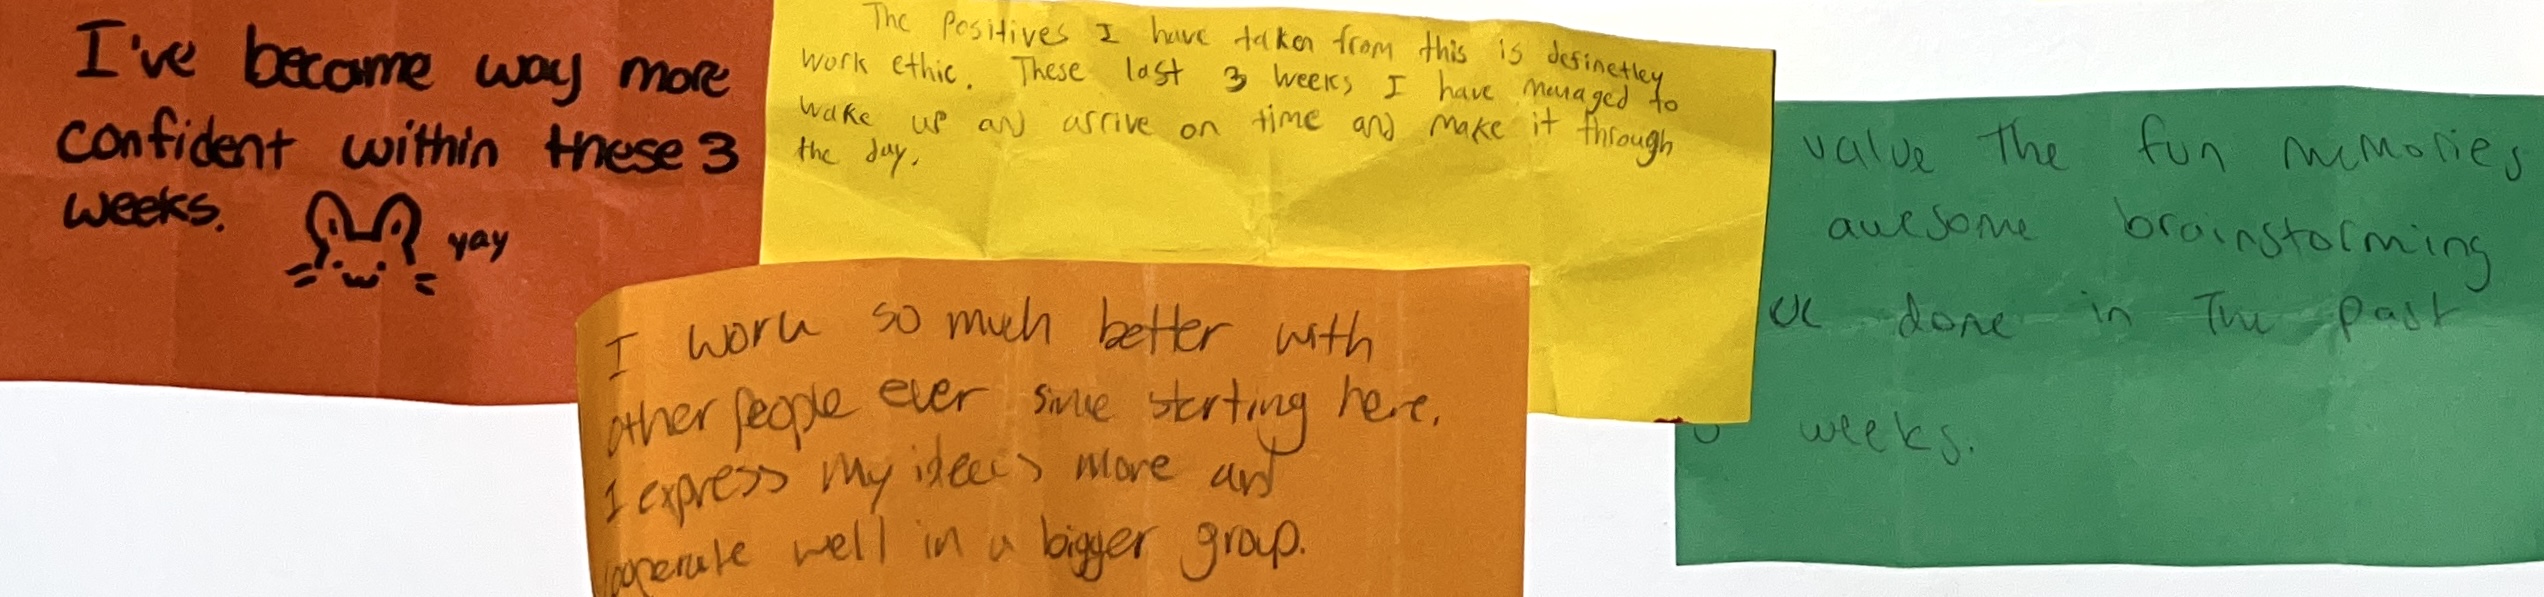 I've become way more
confident within these 3
weeks.
yay
The Positives I have taken from this is definetley
work ethic. These last 3 weeks I have managed to
wake up and arrive on time and make it through
the day.
I work so much better with
other people ever since starting here.
I express my ideas more and
cooperate well in a bigger group.
value the fun memories
awesome brainstorming
done in the past
weeks.